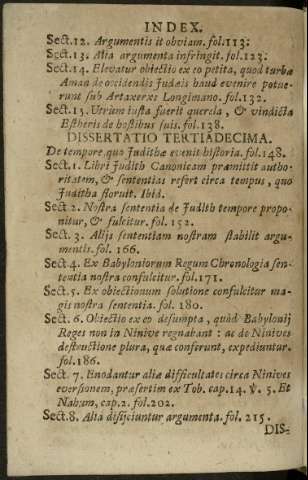 INDEX.
Sect.12. Argumentis it obviam. fol.113:
Sect.13. Alia argumenta infringit. fol.123:
Sect.14. Elevatur obiectio ex eo petita, quod turba
Aman de occidendis Judæis haud evenire potue-
runt sub Artaxerxe Longimano. fol.132.
Sect.15. Utrum iusta fuerit querela, & vindicta
Estheris de hostibus suis. fol.138.
DISSERTATIO TERTIADECIMA.
De tempore quo Judithæ evenit historia. fol.148.
Sect.1. Libri Judith Canonicam præmittit autho-
ritatem, & sententias refert circa tempus, quo
Juditha floruit. Ibid.
Sect 2. Nostra sententia de Judith tempore propo-
nitur, & fulcitur. fol. 152.
Sect. 3. Alijs sententiam nostram stabilit argu-
mentis. fol. 166.
Sect.4. Ex Babyloniorum Regum Chronologia sen-
tentia nostra confulcitur. fol.171.
Sect.5. Ex obiectionum solutione confulcitur ma-
gis nostra sententia. fol. 180.
Sect. 6. Obiectio ex eo desumpta, quòd Babylonij
Reges non in Ninive regnabant: ac de Ninives
destructione plura, quæ conferunt, expediuntur.
fol.186.
Sect. 7. Enodantur aliæ difficultates circa Ninives
eversionem, præsertim ex Tob. cap.14. ℣. 5. Et
Nahum, cap.2. fol.202.
Sect.8. Alia disijciuntur argumenta. fol. 215.
DIS-